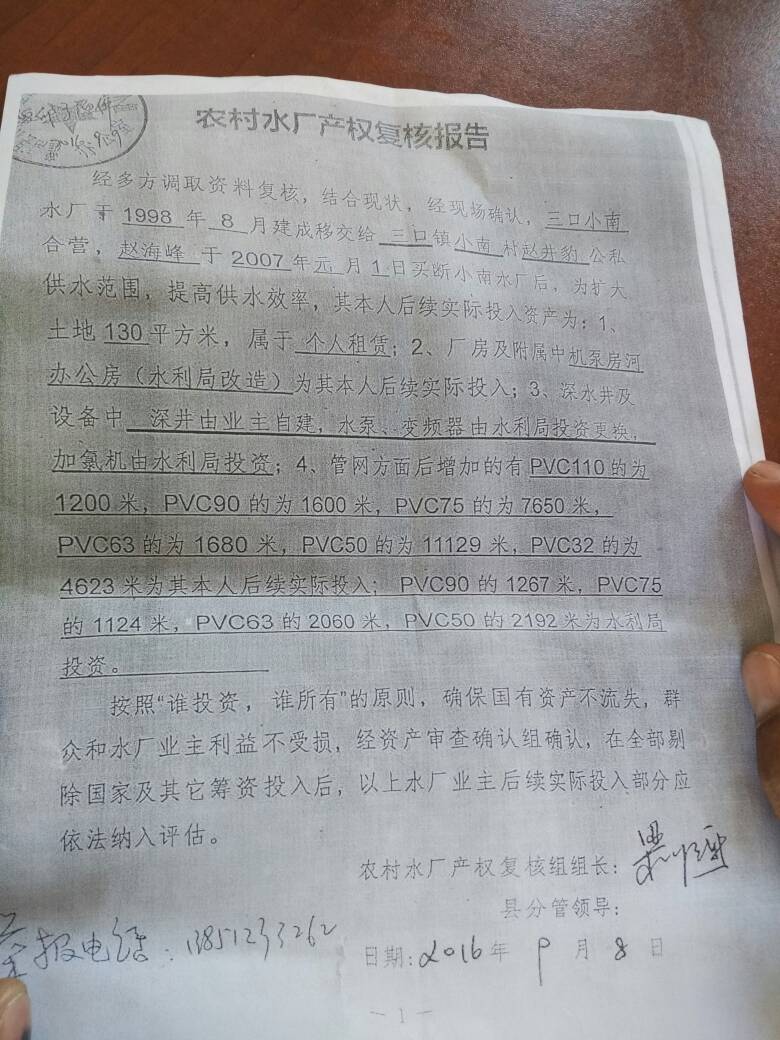 农村水厂产权复核报告
经多方调取资料复核，结合现状，经现场确认，三口小南
水厂于 1998 年 8 月建成移交给 三口镇小南 村赵井豹 公私
合营，赵海峰 于 2007 年元 月 1 日买断小南水厂后，为扩大
供水范围，提高供水效率，其本人后续实际投入资产为：1、
土地 130 平方米，属于 个人租赁；2、厂房及附属中机泵房河
办公房（水利局改造）为其本人后续实际投入；3、深水井及
设备中 深井由业主自建，水泵、变频器由水利局投资更换，
加氯机由水利局投资；4、管网方面后增加的有 PVC110 的为
1200 米，PVC90 的为 1600 米，PVC75 的为 7650 米，
PVC63 的为 1680 米，PVC50 的为 11129 米，PVC32 的为
4623 米为其本人后续实际投入；PVC90 的 1267 米，PVC75
的 1124 米，PVC63 的 2060 米，PVC50 的 2192 米为水利局
投资。
按照“谁投资，谁所有”的原则，确保国有资产不流失，群
众和水厂业主利益不受损，经资产审查确认组确认，在全部剔
除国家及其它筹资投入后，以上水厂业主后续实际投入部分应
依法纳入评估。
农村水厂产权复核组组长：
县分管领导：
举报电话：13851233262
日期：2016 年 9 月 8 日
— 1 —